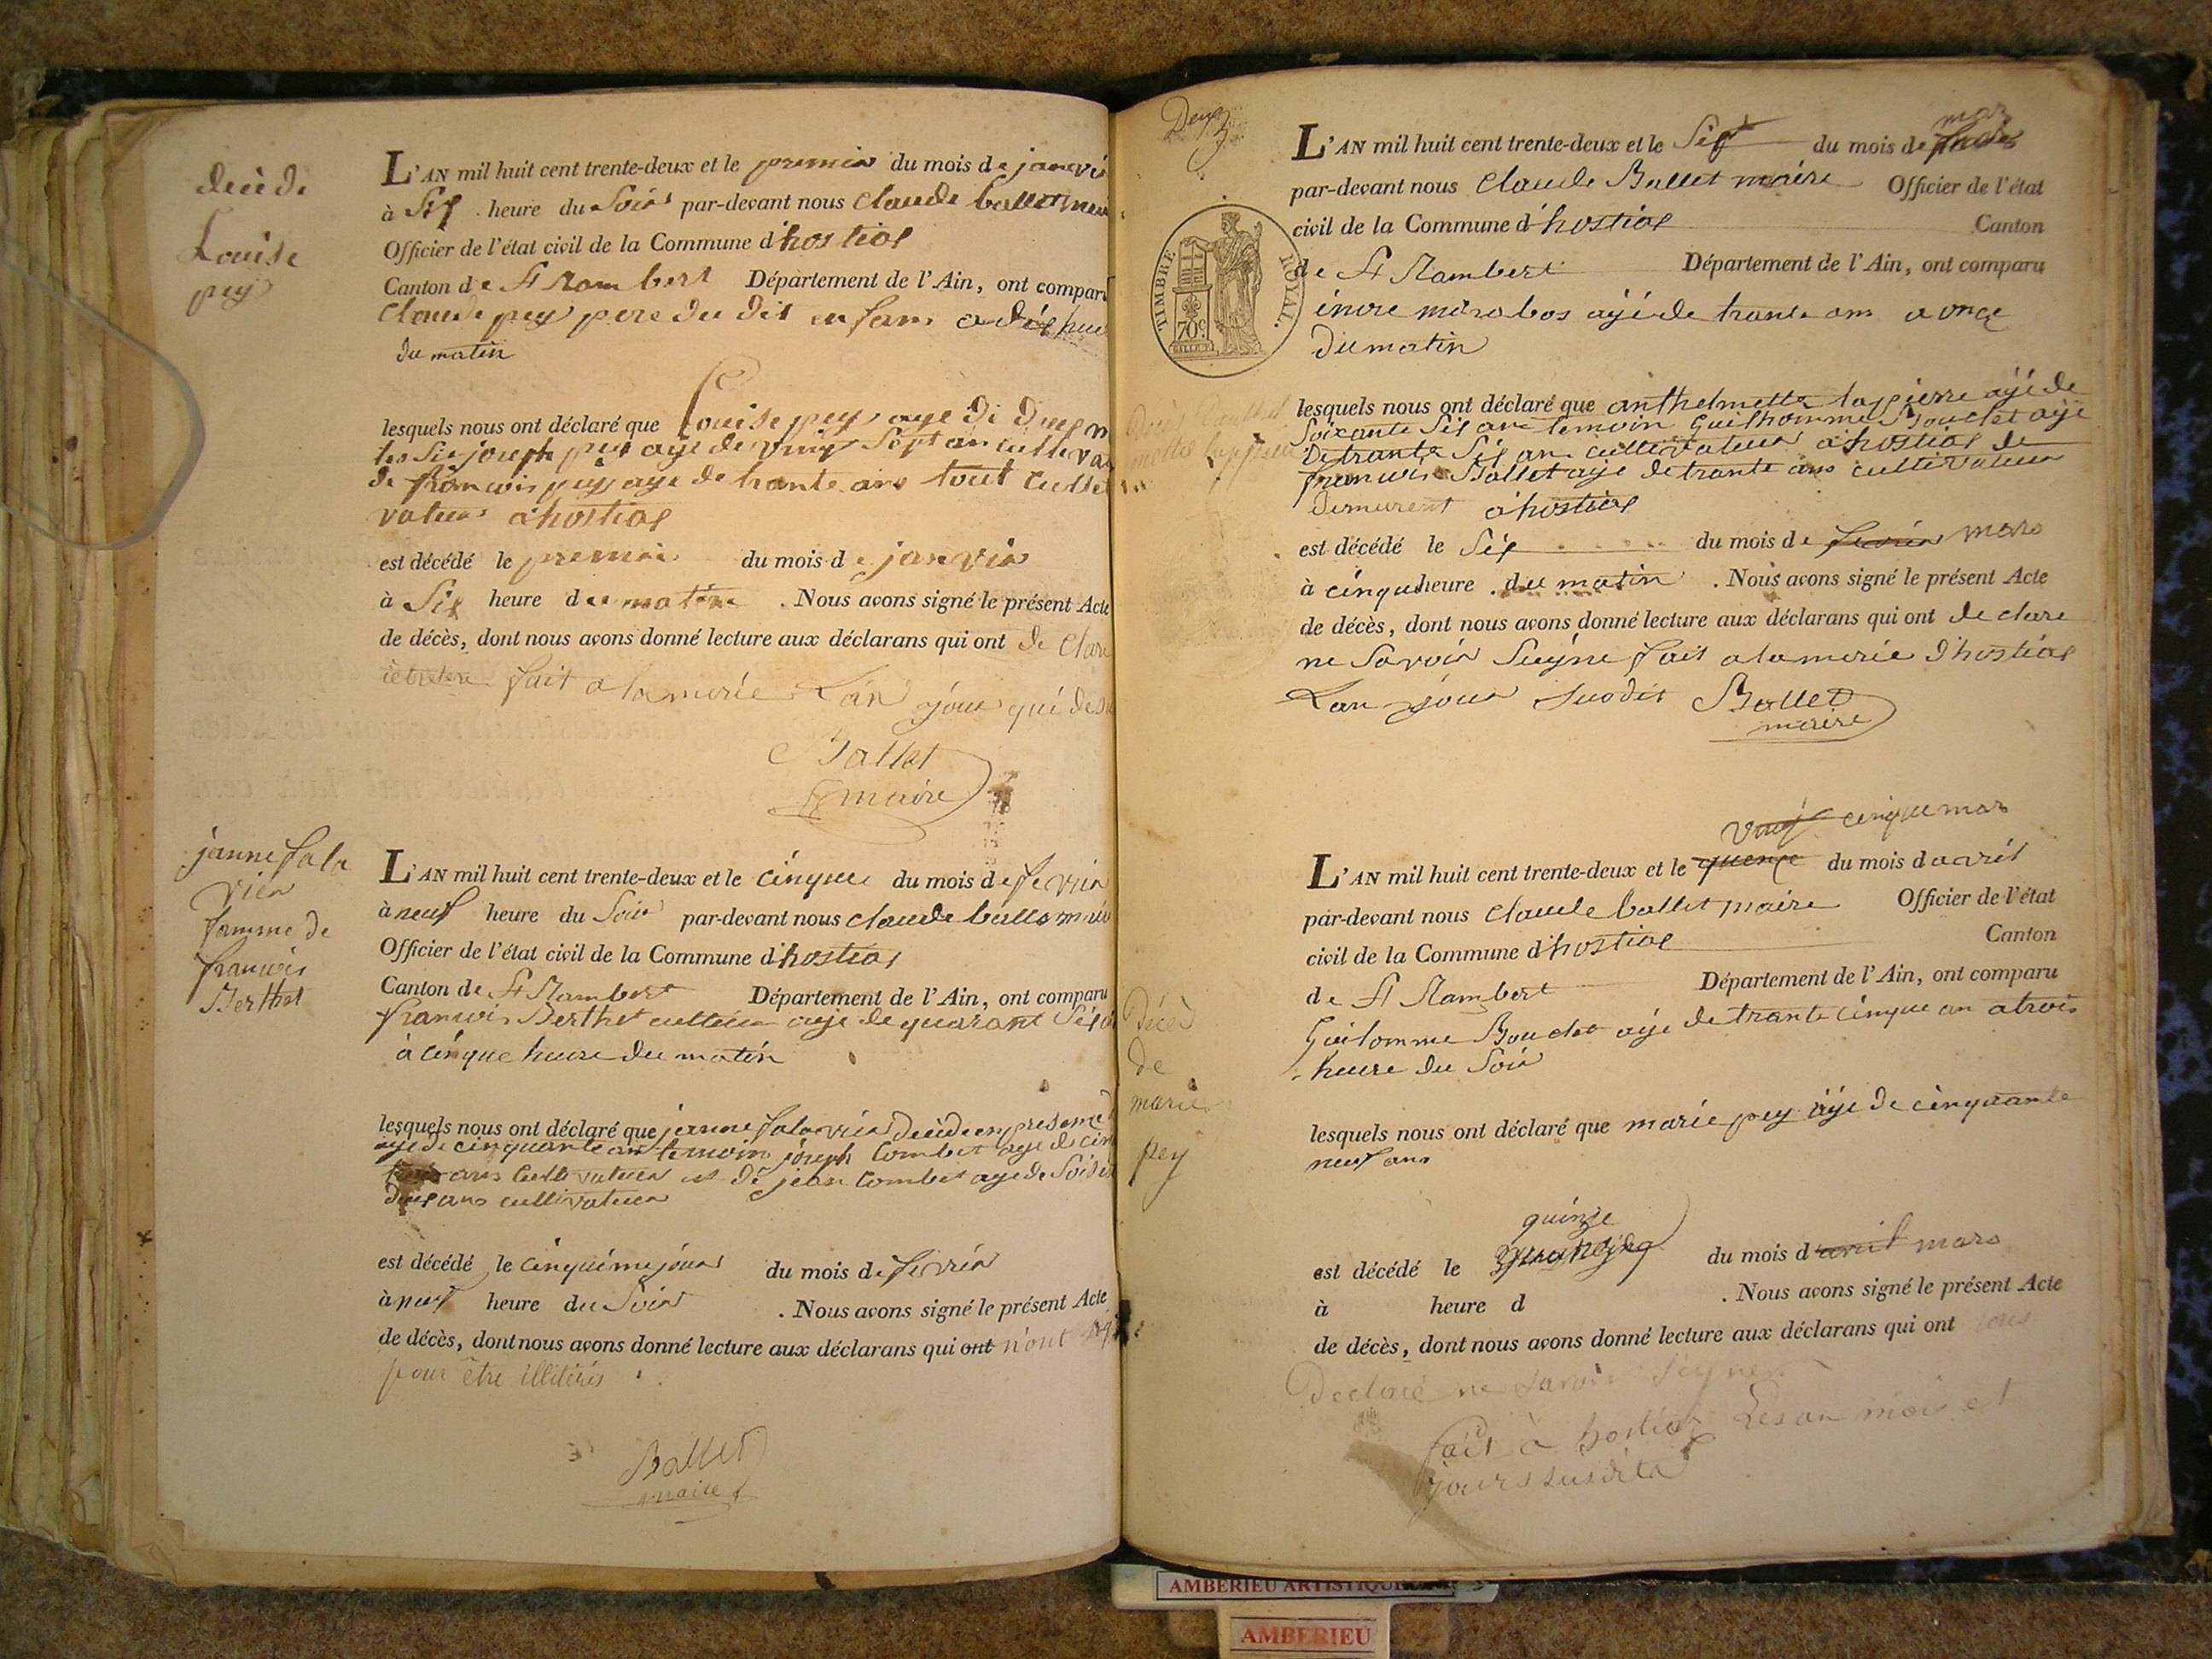 décè de
Louise
pey
L'AN mil huit cent trente-deux et le premier du mois de janvié
à Six heure du Soir par-devant nous Claude ballet
Officier de l'état civil de la Commune d'hostias
Canton de St Rambert Département de l'Ain, ont comparu
Claude pey pere du dit enfans a
du matin
lesquels nous ont déclaré que Louise pey aye de
joseph pey aye de Sept an
de francois pey aye de trante ans tout Culti
vateur a hostias
est décédé le premié du mois de janvié
à Six heure du matin . Nous avons signé le présent Acte
de décès, dont nous avons donné lecture aux déclarans qui ont de Clare
fait a la merie Lan jour qui desu
Ballet
maire
janne fala
vier
famme de
francois
Berthet
L'AN mil huit cent trente-deux et le cinque du mois de fevrié
à neuf heure du Soir par-devant nous claude
Officier de l'état civil de la Commune d'hostias
Canton de St Rambert Département de l'Ain, ont comparu
francois Berthet aye de quarant Six
à cinque heure du matin
lesquels nous ont déclaré que jeanne
aye de cinquante an temoin joseph Combet aye de cin
ans Cultivateur et de jean Combet aye de
ans cultivateur
est décédé le cinquime jour du mois de fevrié
à neuf heure du Soir . Nous avons signé le présent Acte
de décès, dont nous avons donné lecture aux déclarans qui ont n'ont
pour être illitérés
Ballet
maire
Deux
TIMBRE ROYAL.
70c
L'AN mil huit cent trente-deux et le Six du mois de mars
par-devant nous Claude Ballet maire Officier de l'état
civil de la Commune d'hostias Canton
de St Rambert Département de l'Ain, ont comparu
ayé de trante ans a onze
du matin
lesquels nous ont déclaré que anthelmette lapierre ayé de
Soixante Six an temoin Guilhomme Bouchet aye
de trante Six an cultivateur a hostias de
francois Ballet aye de trante ans cultivateur
demurent a hostias
est décédé le Six du mois de fevrié mars
à cinque heure du matin . Nous avons signé le présent Acte
de décès, dont nous avons donné lecture aux déclarans qui ont de clare
ne Savoir Suyne fait a la merie d'hostias
Lan jour susdit Ballet
maire
vingt cinque mars
L'AN mil huit cent trente-deux et le du mois d avril
par-devant nous Claude ballet maire Officier de l'état
civil de la Commune d'hostias Canton
de St Rambert Département de l'Ain, ont comparu
Guilomme Bouchet aye de trante cinque an a trois
heure du Soir
Décès
de
marie
pey
lesquels nous ont déclaré que marie pey aye de cinquante
neuf ans
quinze
est décédé le du mois d avril mars
à heure d . Nous avons signé le présent Acte
de décès, dont nous avons donné lecture aux déclarans qui ont
Declaré ne savoir Signer
fait à hostias Les an mois et
jours susdits
AMBERIEU ARTISTIQUE
AMBERIEU